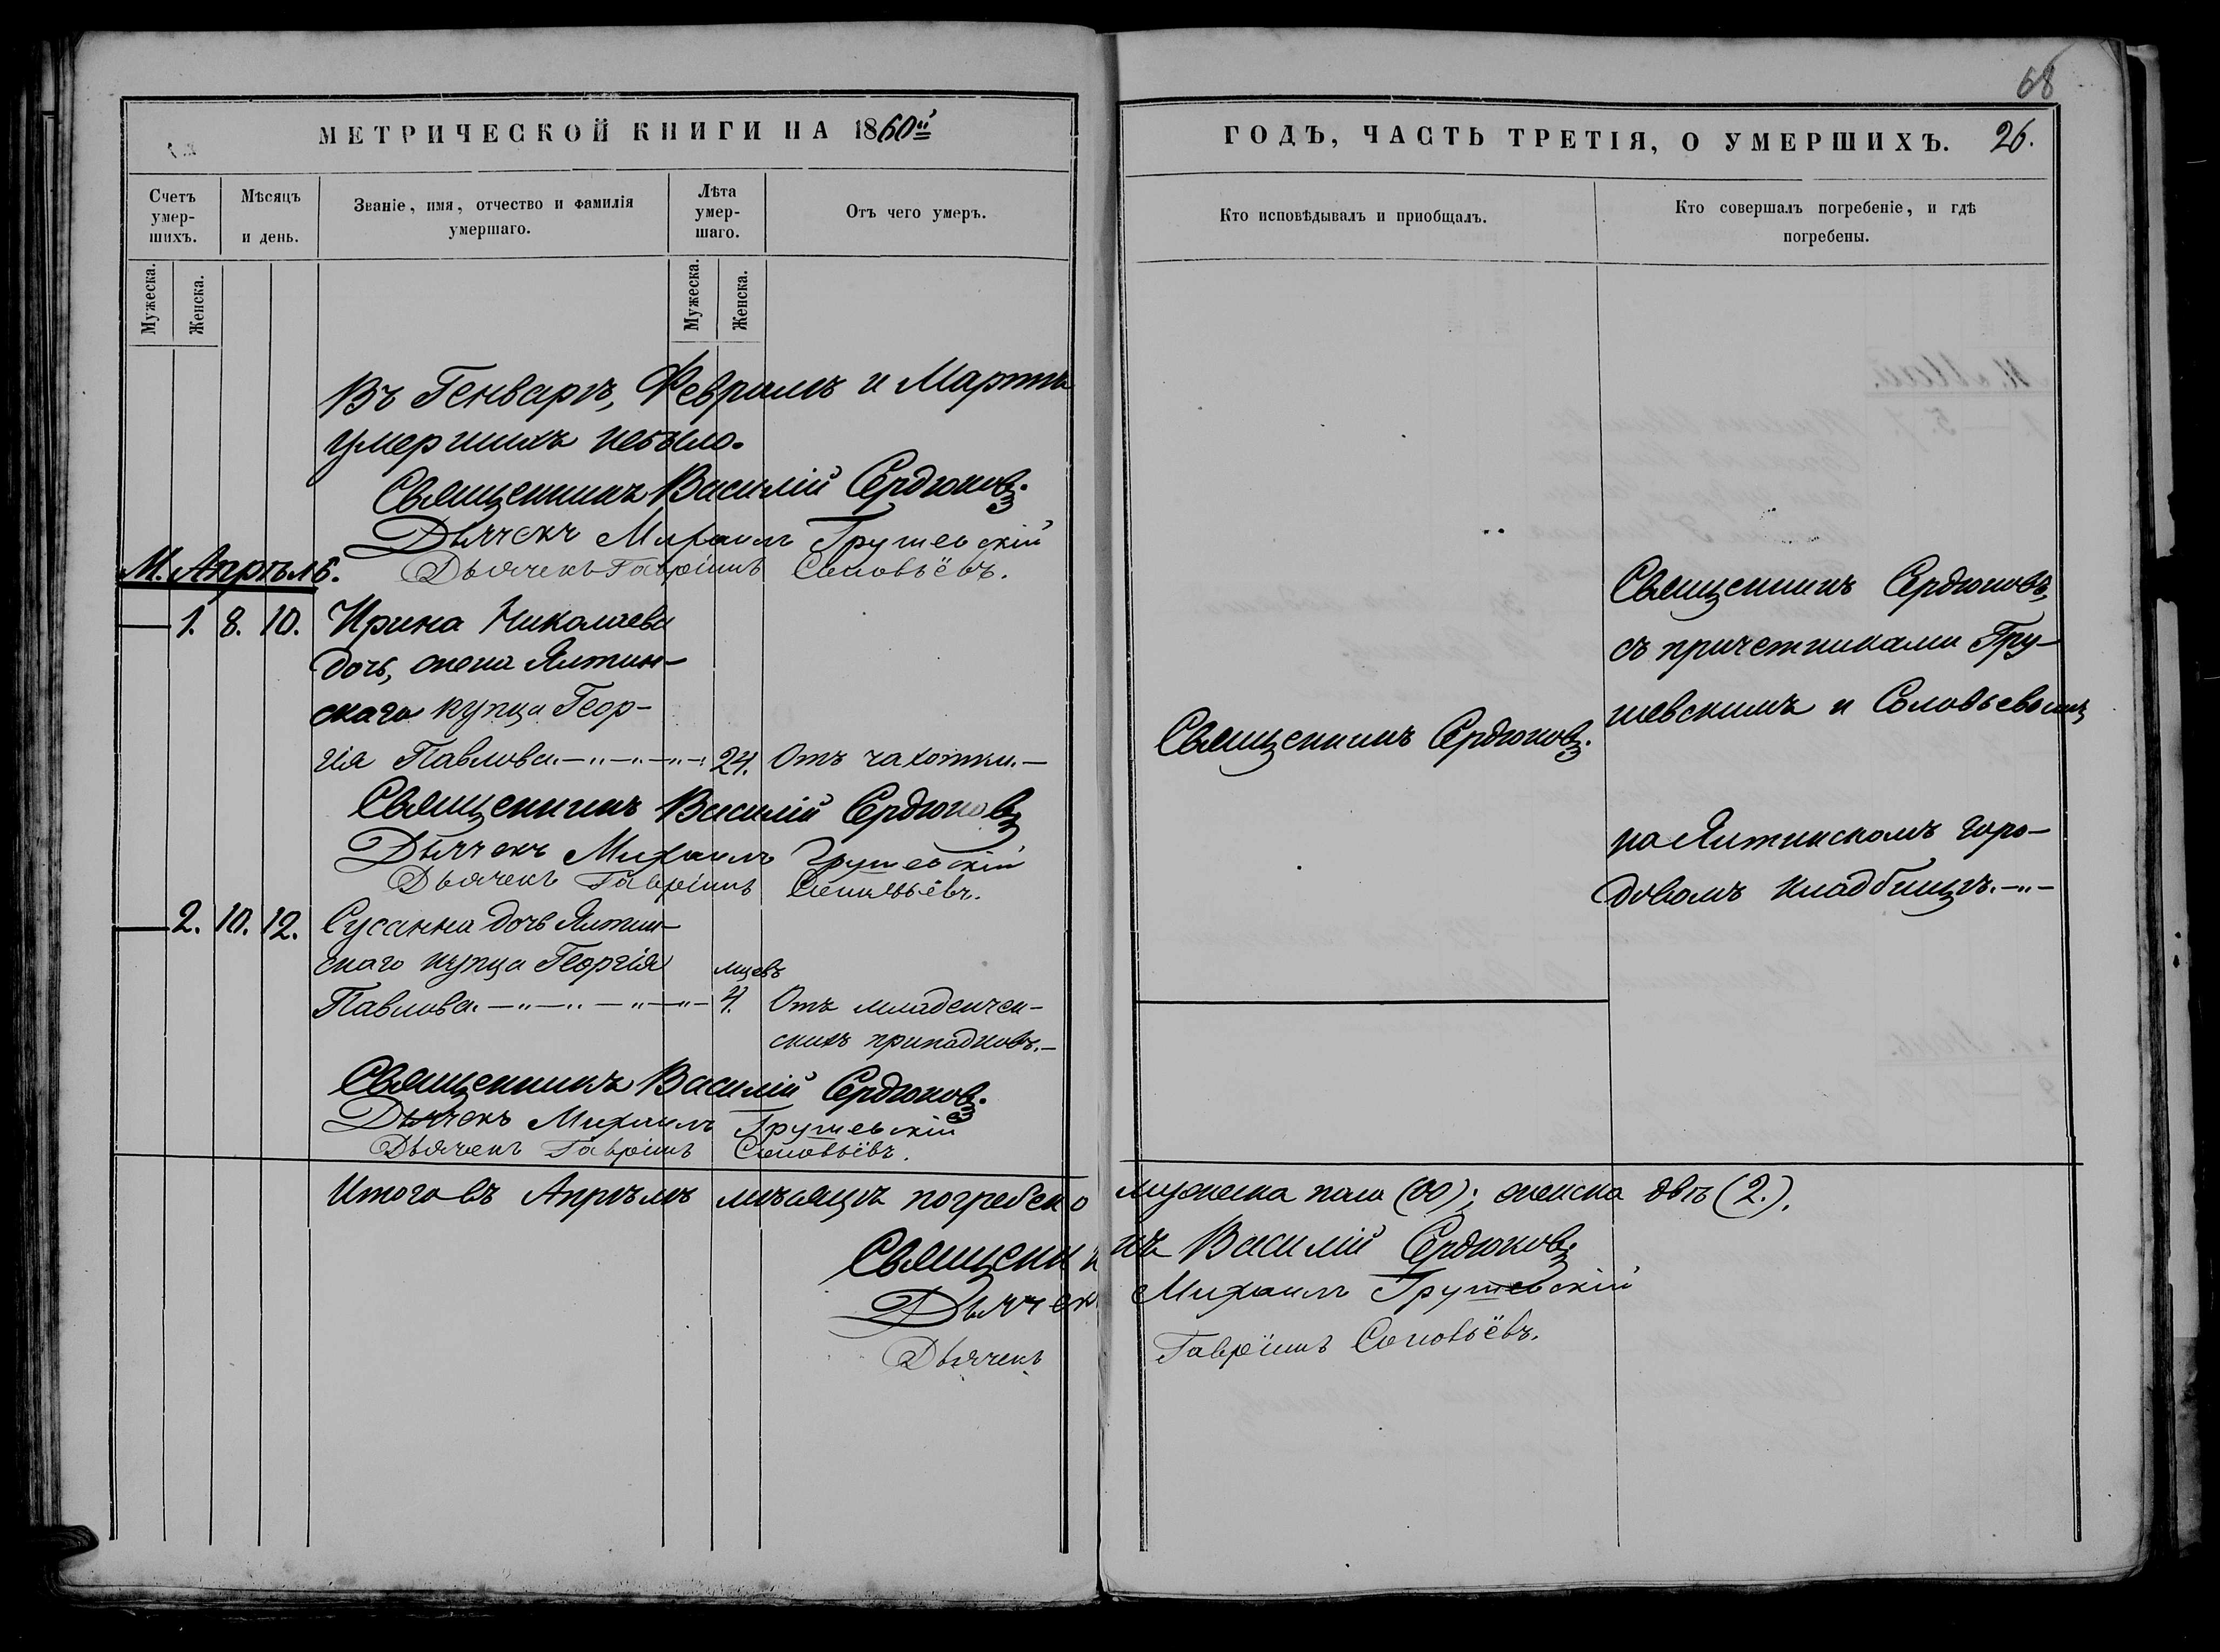 68
МЕТРИЧЕСКОЙ КНИГИ НА 1860й
ГОДЪ, ЧАСТЬ ТРЕТІЯ, О УМЕРШИХЪ. 26.
Счетъ умер-шихъ.
Мѣсяцъ и день.
Званіе, имя, отчество и фамилія умершаго.
Лѣта умер-шаго.
Отъ чего умеръ.
Кто исповѣдывалъ и приобщалъ.
Кто совершалъ погребеніе, и гдѣ погребены.
Мужеска. Женска. Мужеска. Женска.
Въ Генварѣ, Февралѣ и Мартѣ
умершихъ небыло.
Священникъ Василій Сердюковъ.
Дьячекъ Михаилъ Грушевскій
Дьячекъ Гавріилъ Соловьёвъ.
М. Апрѣль.
1. 8. 10. Ирина Николаева
дочь, жена Ялтин-
скаго купца Геор-
гія Павлова. 24. Отъ чахотки.
Священникъ Василій Сердюковъ
Дьячекъ Михаилъ Грушевскій
Дьячекъ Гавріилъ Соловьёвъ.
2. 10. 12. Сусанна дочь Ялтин-
скаго купца Георгія мцевъ
Павлова. 4. Отъ младенчес-
кихъ припадковъ.
Священникъ Василій Сердюковъ.
Дьячекъ Михаилъ Грушевскій
Дьячекъ Гавріилъ Соловьёвъ.
Священникъ Сердюковъ.
Священникъ Сердюковъ,
съ причетниками Гру-
шевскимъ и Соловьевымъ
на Ялтинскомъ горо-
довомъ кладбищѣ.
Итого въ Апрѣлѣ мѣсяцѣ погребено мужеска пола (00); женска двѣ (2.).
Священникъ Василій Сердюковъ
Дьячекъ Михаилъ Грушевскій
Дьячекъ Гавріилъ Соловьёвъ.